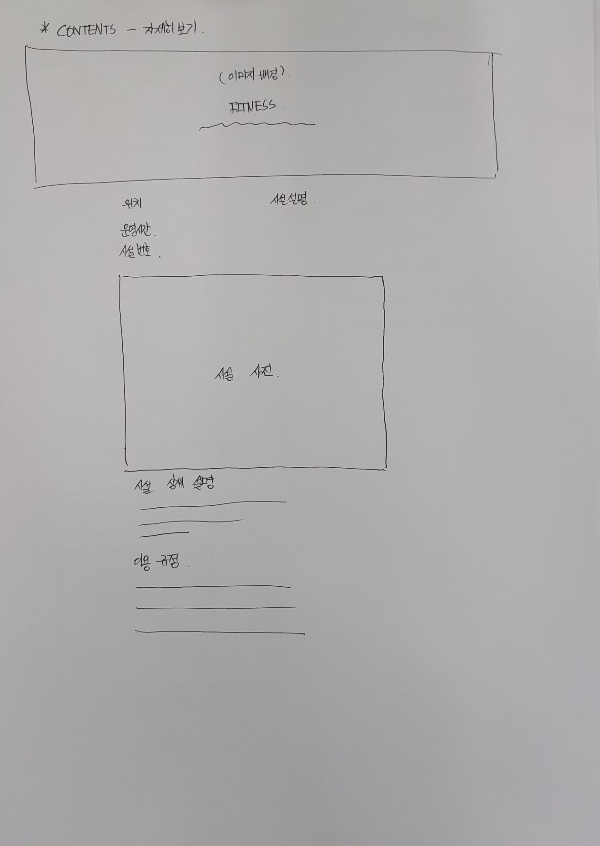 * CONTENTS - 자세히보기.
(이미지 배경).
FITNESS.
위치
시설 설명.
운영시간.
시설 번호.
시설 사진.
시설 상세 설명
이용 규정.